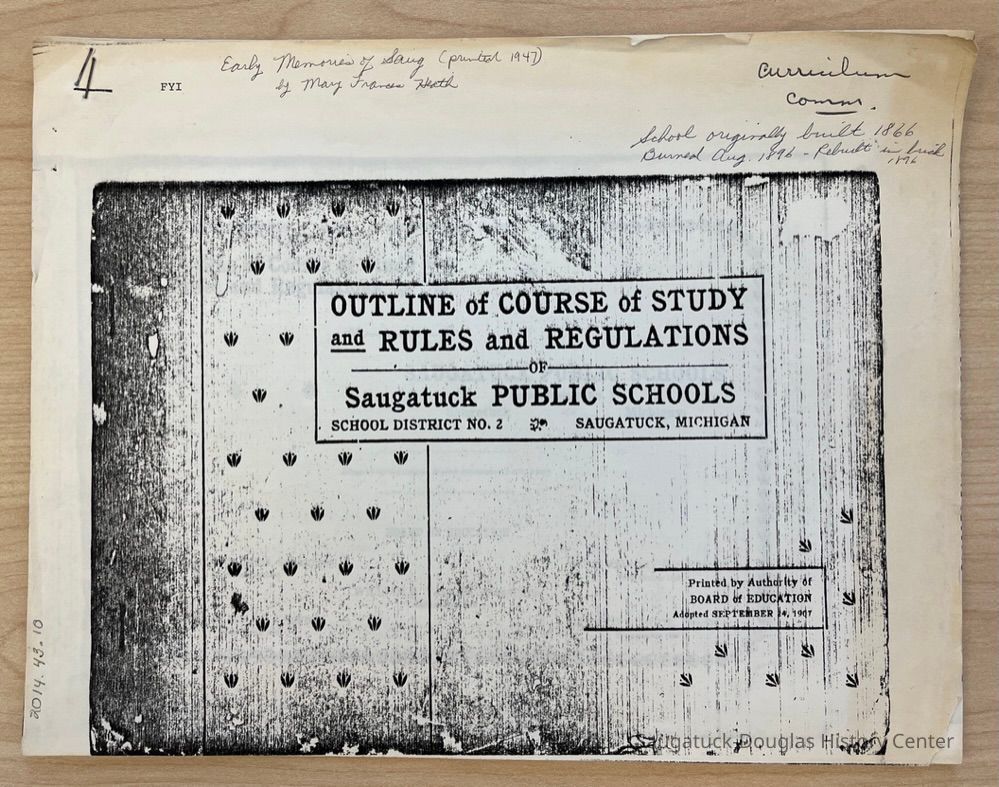 4
FYI
Early Memories of Saug (printed 1947)
by Mary Frances Heath
Curriculum
Comm.
School originally built 1866
Burned Aug. 1896 - Rebuilt in brick
1896
OUTLINE of COURSE of STUDY
and RULES and REGULATIONS
OF
Saugatuck PUBLIC SCHOOLS
SCHOOL DISTRICT NO. 2 SAUGATUCK, MICHIGAN
Printed by Authority of
BOARD of EDUCATION
Adopted SEPTEMBER 24, 1907
2014.43.10
Saugatuck-Douglas History Center